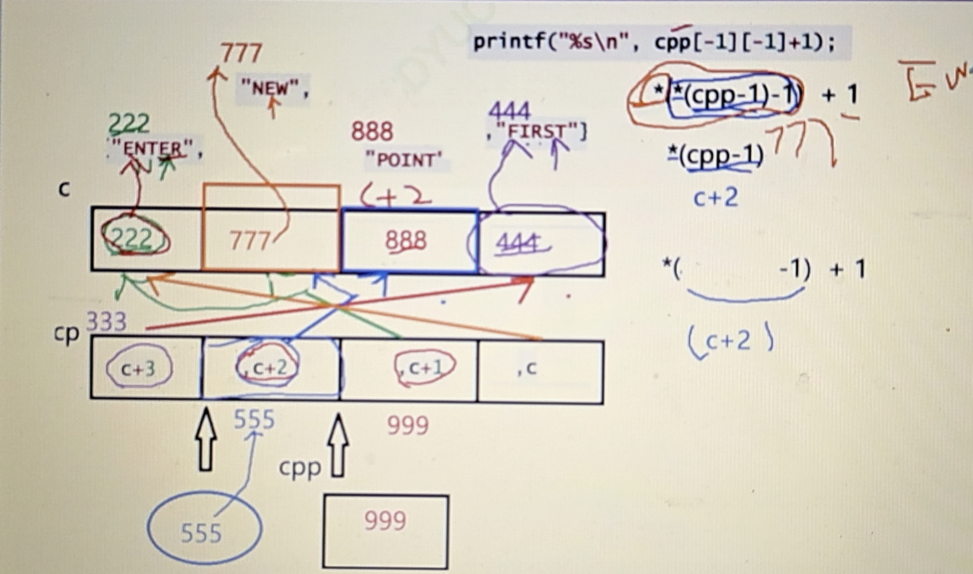 printf("%s\n", cpp[-1][-1]+1);
777
"NEW",
*(*(cpp-1)-1) + 1
EW
222
"ENTER",
888
"POINT'
444
,"FIRST"}
*(cpp-1)
777
c+2
c
c+2
222
777
888
444
*( -1) + 1
(c+2)
cp
333
c+3
,c+2
,c+1
,c
555
999
cpp
555
999